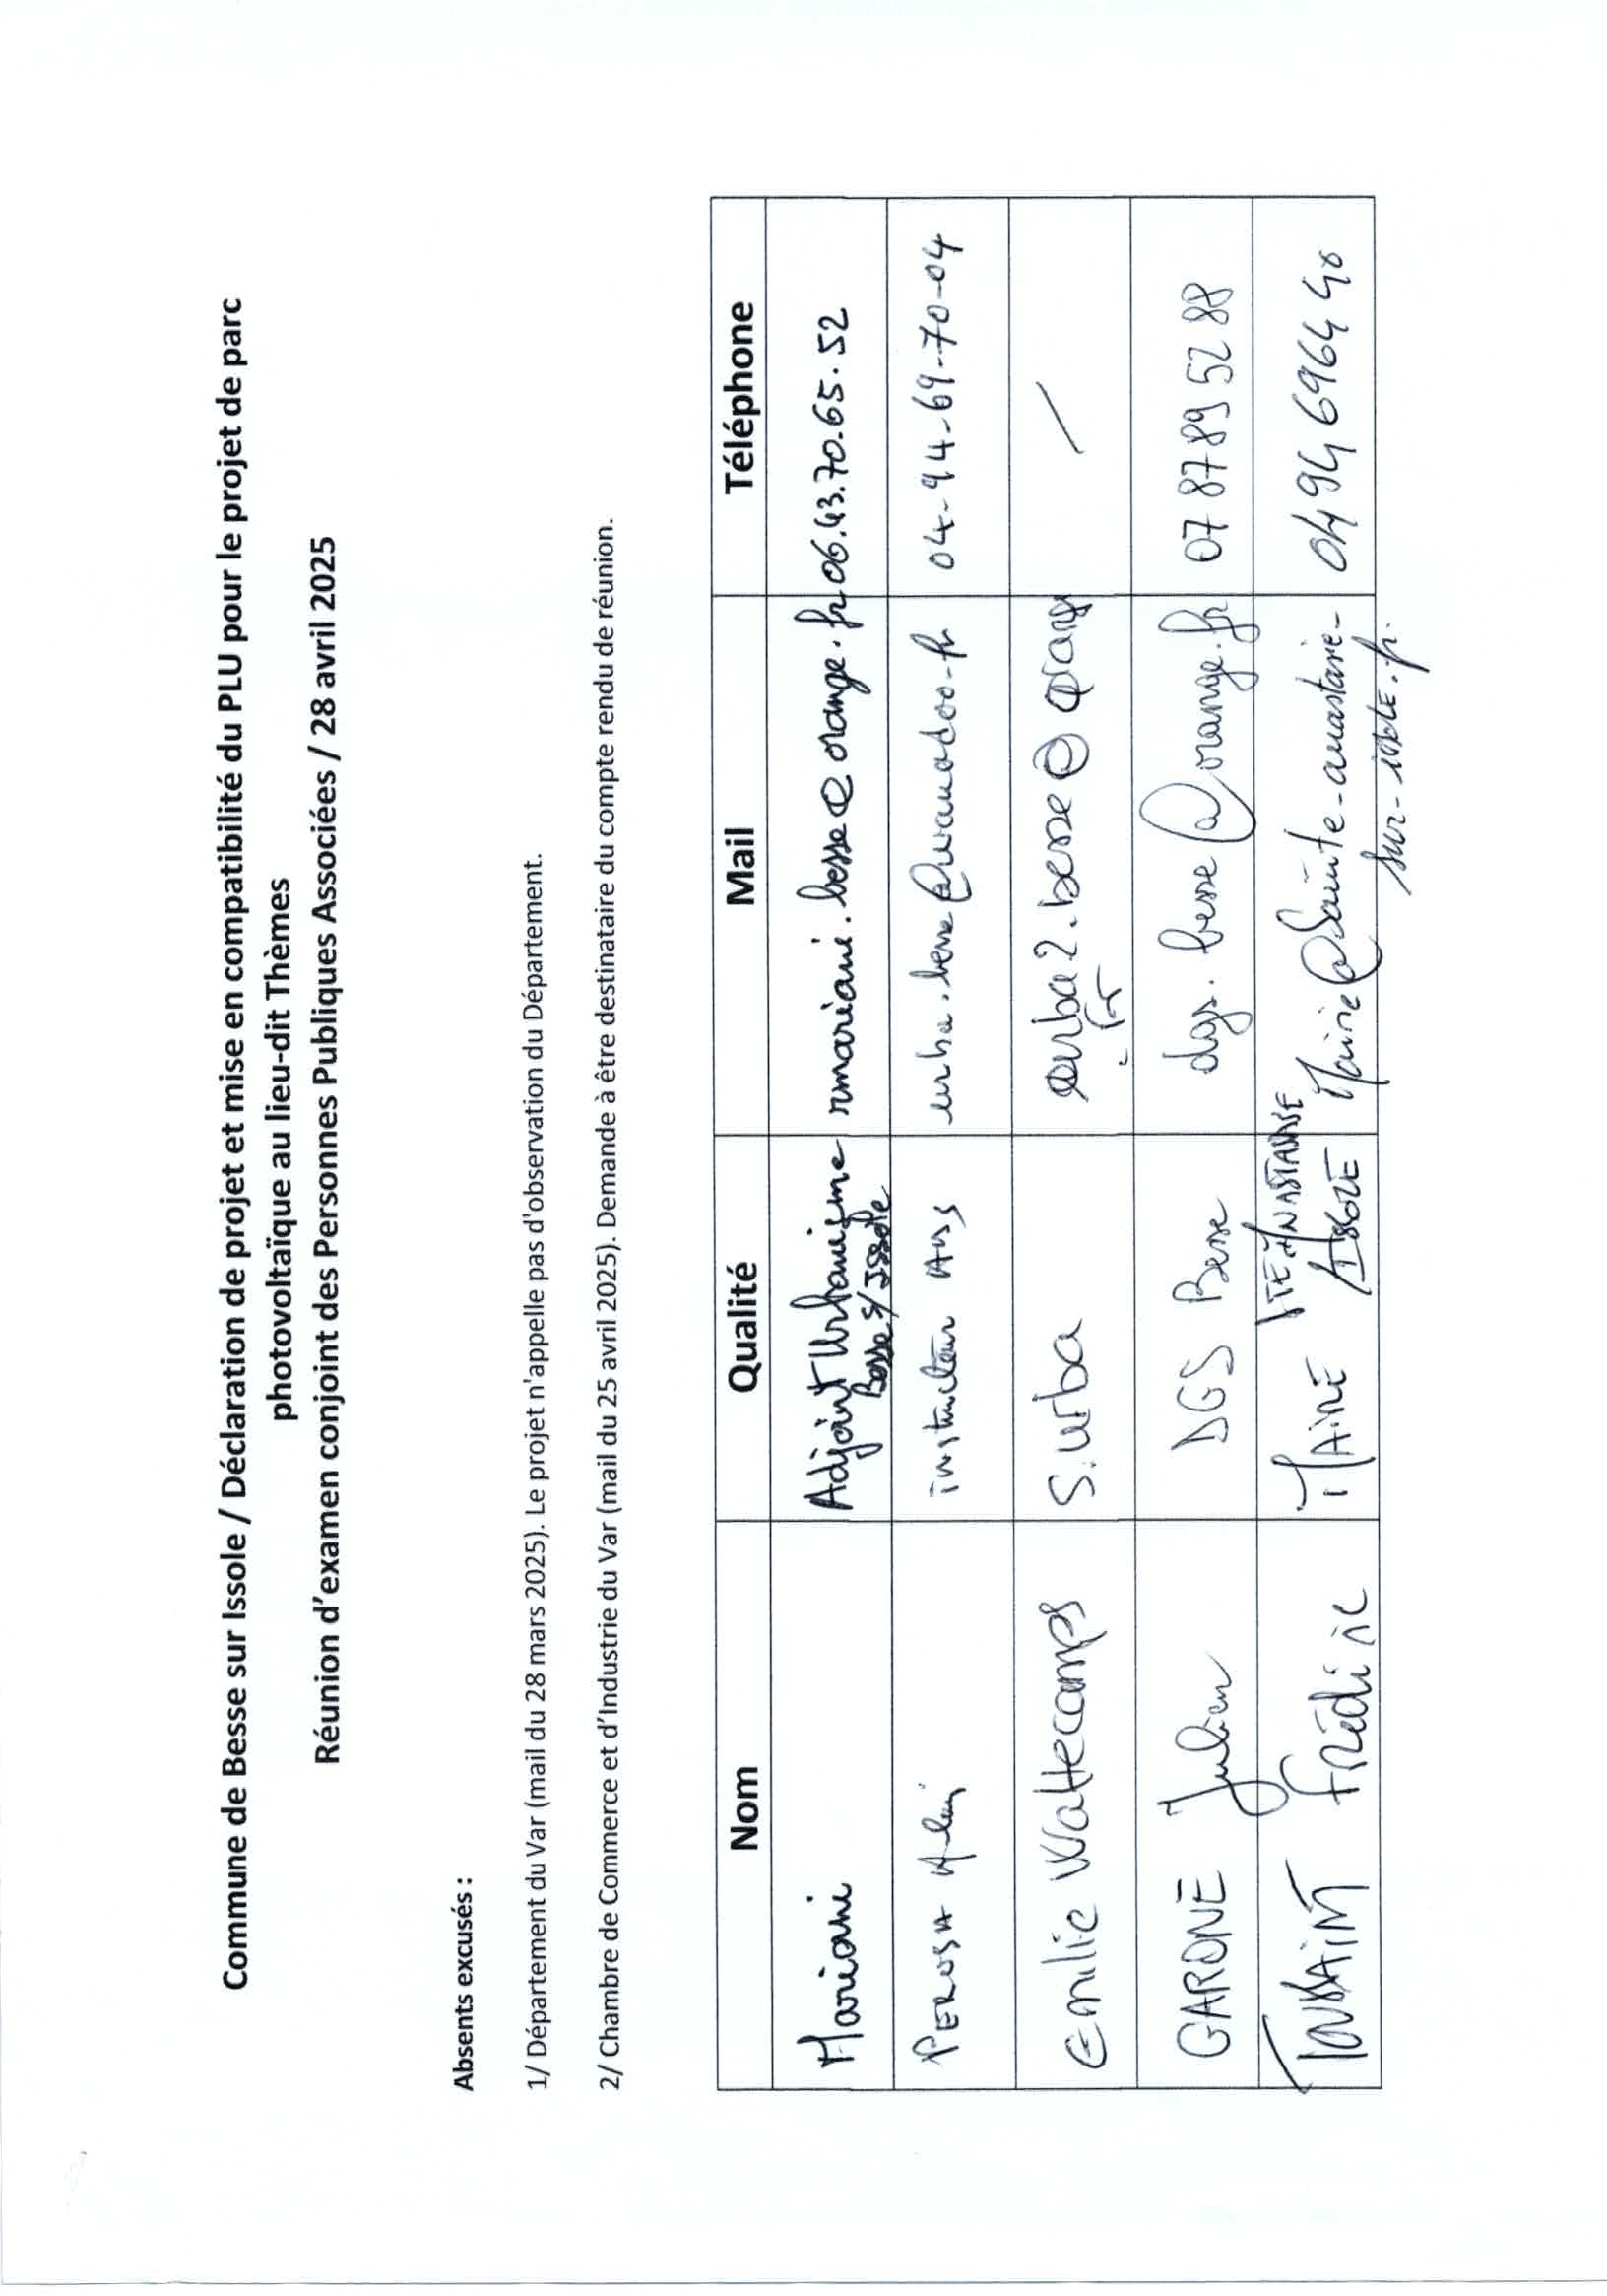 Commune de Besse sur Issole / Déclaration de projet et mise en compatibilité du PLU pour le projet de parc
photovoltaïque au lieu-dit Thèmes
Réunion d'examen conjoint des Personnes Publiques Associées / 28 avril 2025
Absents excusés :
1/ Département du Var (mail du 28 mars 2025). Le projet n'appelle pas d'observation du Département.
2/ Chambre de Commerce et d'Industrie du Var (mail du 25 avril 2025). Demande à être destinataire du compte rendu de réunion.
Nom Qualité Mail Téléphone
Mariani Adjoint Urbanisme rmariani.besse@orange.fr 06.43.70.65.52
Besse s/ Issole
PEROSA Alain instructeur urba.besse@wanadoo.fr 04-94-69-70-04
Emilie Wattecamps S.urba urba2.besse@orange /
.fr
GARONE Julien DGS Besse dgs.besse@orange.fr 07 87 89 52 88
STE ANASTASIE
Frédéric MAIRE ISSOLE Mairie@Sainte-anastasie- 04 94 69 64 40
sur-issole.fr.